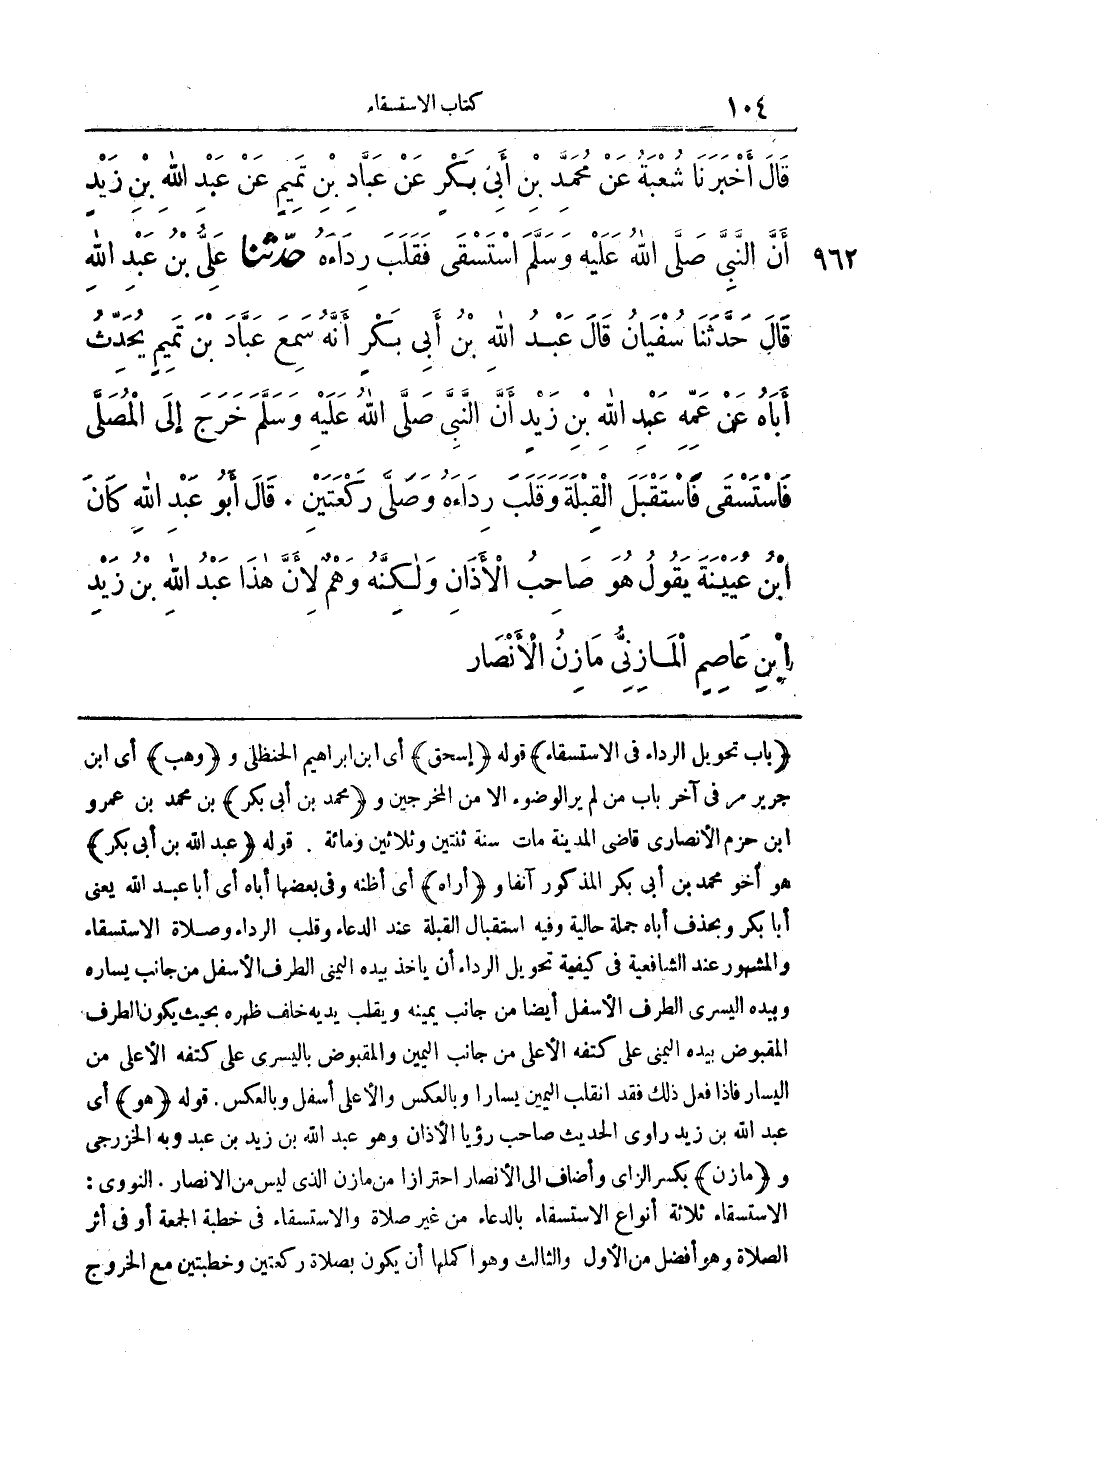 ١٠٤ كتاب الاستسقاء
قَالَ أَخْبَرَنَا شُعْبَةُ عَنْ مُحَمَّدِ بْنِ أَبِي بَكْرٍ عَنْ عَبَّادِ بْنِ تَمِيمٍ عَنْ عَبْدِ اللهِ بْنِ زَيْدٍ
٩٦٢ أَنَّ النَّبِيَّ صَلَّى اللهُ عَلَيْهِ وَسَلَّمَ اسْتَسْقَى فَقَلَبَ رِدَاءَهُ حَدَّثَنَا عَلِيُّ بْنُ عَبْدِ اللهِ
قَالَ حَدَّثَنَا سُفْيَانُ قَالَ عَبْدُ اللهِ بْنُ أَبِي بَكْرٍ أَنَّهُ سَمِعَ عَبَّادَ بْنَ تَمِيمٍ يُحَدِّثُ
أَبَاهُ عَنْ عَمِّهِ عَبْدِ اللهِ بْنِ زَيْدٍ أَنَّ النَّبِيَّ صَلَّى اللهُ عَلَيْهِ وَسَلَّمَ خَرَجَ إِلَى الْمُصَلَّى
فَاسْتَسْقَى فَاسْتَقْبَلَ الْقِبْلَةَ وَقَلَبَ رِدَاءَهُ وَصَلَّى رَكْعَتَيْنِ . قَالَ أَبُو عَبْدِ اللهِ كَانَ
ابْنُ عُيَيْنَةَ يَقُولُ هُوَ صَاحِبُ الْأَذَانِ وَلٰكِنَّهُ وَهْمٌ لِأَنَّ هٰذَا عَبْدُ اللهِ بْنُ زَيْدِ
ابْنِ عَاصِمٍ الْمَازِنِيُّ مَازِنُ الْأَنْصَارِ
﴿باب تحويل الرداء فى الاستسقاء﴾ قوله ﴿إسحق﴾ أى ابن ابراهيم الحنظلى و ﴿وهب﴾ أى ابن
جرير مر فى آخر باب من لم ير الوضوء الا من المخرجين و ﴿محمد بن أبى بكر﴾ بن محمد بن عمرو
ابن حزم الأنصارى قاضى المدينة مات سنة ثنتين وثلاثين ومائة . قوله ﴿عبد الله بن أبى بكر﴾
هو أخو محمد بن أبى بكر المذكور آنفا و ﴿أراه﴾ أى أظنه وفى بعضها أباه أى أبا عبد الله يعنى
أبا بكر وبحذف أباه جملة حالية وفيه استقبال القبلة عند الدعاء وقلب الرداء وصلاة الاستسقاء
والمشهور عند الشافعية فى كيفية تحويل الرداء أن ياخذ بيده اليمنى الطرف الأسفل من جانب يساره
وبيده اليسرى الطرف الأسفل أيضا من جانب يمينه ويقلب يديه خلف ظهره بحيث يكون الطرف
المقبوض بيده اليمنى على كتفه الأعلى من جانب اليمين والمقبوض باليسرى على كتفه الأعلى من
اليسار فاذا فعل ذلك فقد انقلب اليمين يسارا وبالعكس والأعلى أسفل وبالعكس . قوله ﴿هو﴾ أى
عبد الله بن زيد راوى الحديث صاحب رؤيا الأذان وهو عبد الله بن زيد بن عبد ربه الخزرجى
و ﴿مازن﴾ بكسر الزاى وأضاف الى الأنصار احترازا من مازن الذى ليس من الانصار . النووى :
الاستسقاء ثلاثة أنواع الاستسقاء بالدعاء من غير صلاة والاستسقاء فى خطبة الجمعة أو فى أثر
الصلاة وهو أفضل من الأول والثالث وهو أكملها أن يكون بصلاة ركعتين وخطبتين مع الخروج